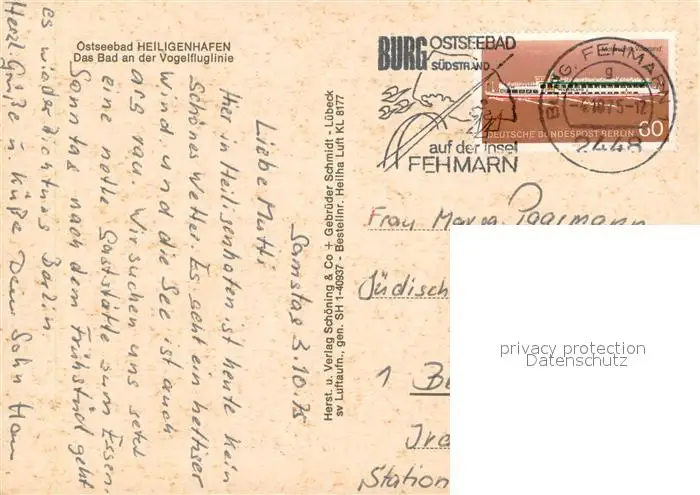 Ostseebad HEILIGENHAFEN
Das Bad an der Vogelfluglinie
Samstag 3.10.75
Liebe Mutti
Hier in Heiligenhafen ist heute kein
schönes Wetter. Es geht ein heftiger
wind und die See ist auch
arg rau. Wir suchen uns jetzt
eine nette Gaststätte zum Essen.
Sonntag nach dem Frühstück geht
es wieder richtung Berlin.
Herzl. Grüße u. Küße Dein Sohn
Herst. u. Verlag Schöning & Co + Gebrüder Schmidt - Lübeck
sv Luftaufn., gen. SH 1-40937 - Bestellnr. Heilha Luft KL 8177
BURG OSTSEEBAD
SÜDSTRAND
auf der Insel
FEHMARN
BURG, FEHMARN
g
2448
DEUTSCHE BUNDESPOST BERLIN 60
Frau
Jüdisch
1 Be
Station
privacy protection
Datenschutz